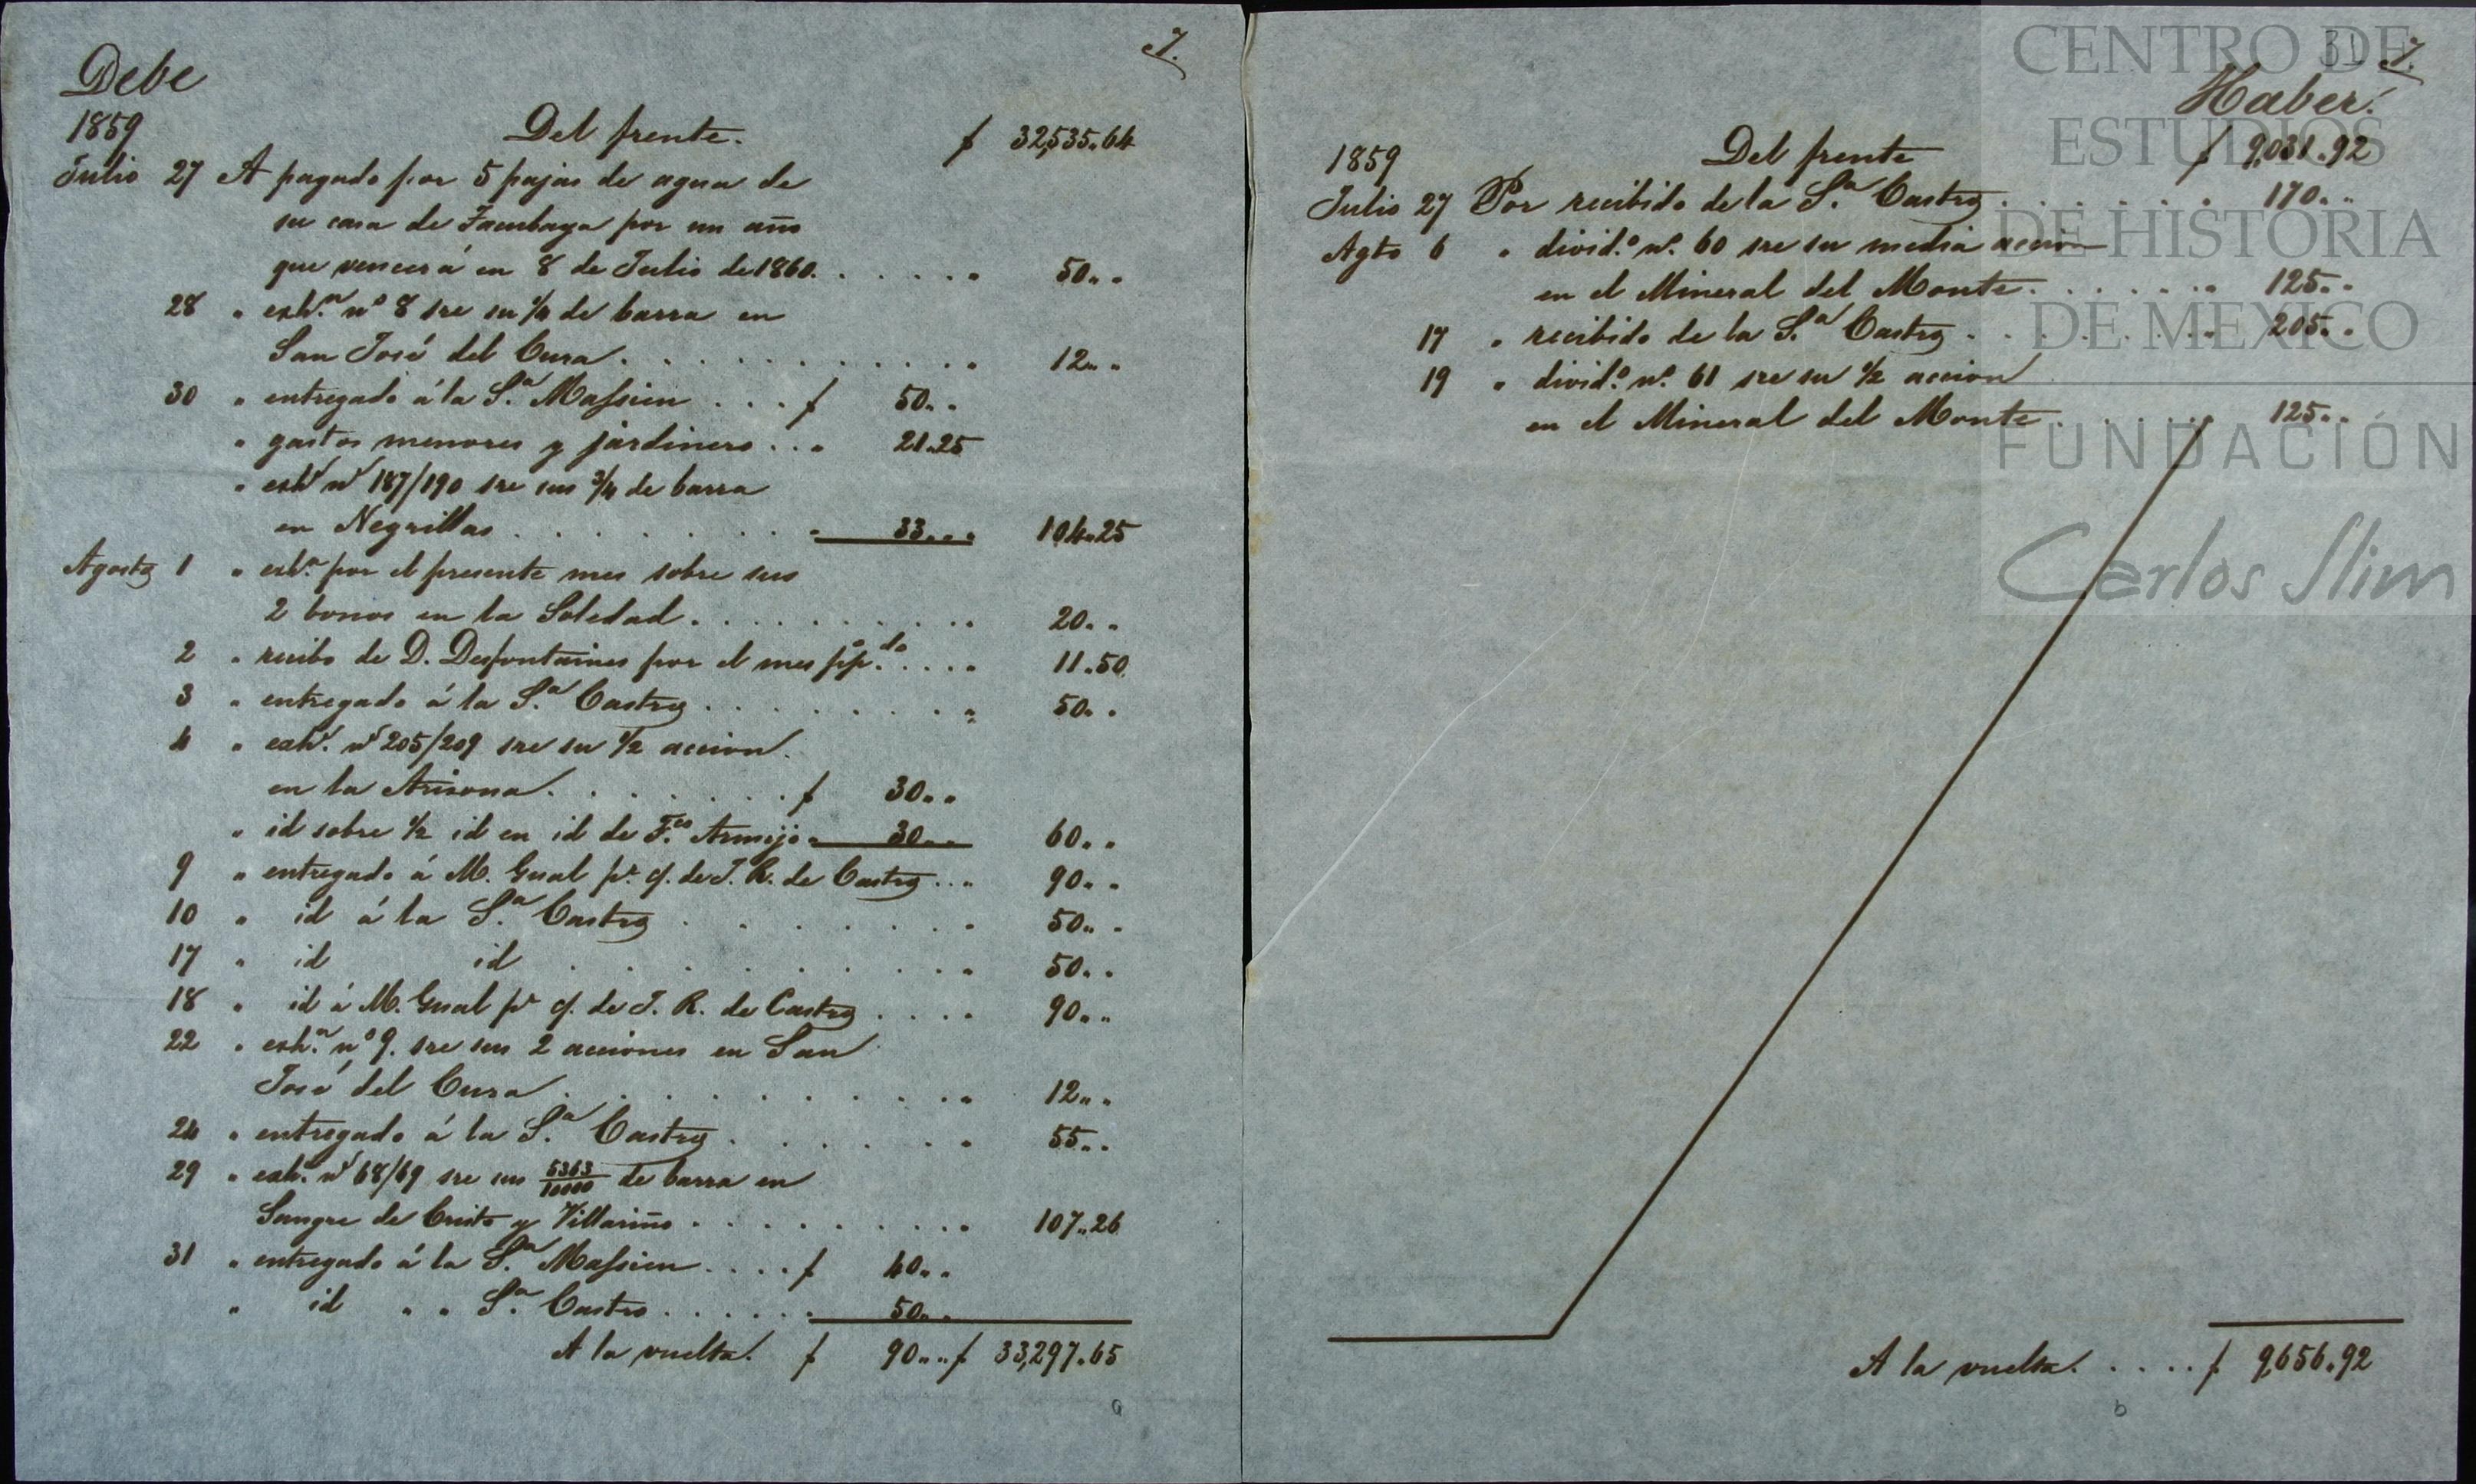 7.
Debe
1859 Del frente. $ 32,535.64
Julio 27 A pagado por 5 pajas de agua de
su casa de Tacubaya por un año
que vencerá en 8 de Julio de 1860. . . . . . . 50 " "
28 " exhn. no 8 sre su 1/4 de barra en
San José del Cura . . . . . . . . . . . . 12 " "
30 " entregado á la Sa. Massieu . . . $ 50 " "
" gastos menores y jardinero . . " 21.25
" exhs ns 187/190 sre sus 3/4 de barra
en Negrillas . . . . . . . . " 33 " " 104.25
Agosto 1 " exhn. por el presente mes sobre sus
2 bonos en la Soledad . . . . . . . . . . 20 " "
2 " recibo de D. Desfontaines por el mes ppdo. . . . . 11.50
3 " entregado á la Sa. Castro . . . . . . . . . 50 " "
4 " exhs. ns 205/209 sre su 1/2 accion
en la Arizona . . . . . . . . $ 30 " "
" id sobre 1/2 id en id de Fco. Armijo " 30 " " 60 " "
9 " entregado á M. Gual pr. c/. de J. R. de Castro . . " 90 " "
10 " id á la Sa. Castro . . . . . . . . 50 " "
17 " id id . . . . . . . . . . 50 " "
18 " id á M. Gual pr c/. de J. R. de Castro . . . . 90 " "
22 " exhn. no 9. sre sus 2 acciones en San
José del Cura . . . . . . . . . . . 12 " "
24 " entregado á la Sa. Castro . . . . . . . 55 " "
29 " exhs. ns 68/69 sre sus 5363/10000 de barra en
Sangre de Cristo y Villariño . . . . . . . . . 107.26
31 " entregado á la Sa. Massieu . . . . $ 40 " "
" id " " Sa. Castro . . . . . . " 50 " "
A la vuelta. $ 90 " " $ 33,297.65
a
31 7.
Haber.
1859 Del frente $ 9,031.92
Julio 27 Por recibido de la Sa. Castro . . . . . . . 170 " "
Agto 6 " divido. no. 60 sre su media accion
en el Mineral del Monte . . . . . . " 125 " "
17 " recibido de la Sa. Castro . . . . . . . 205 " "
19 " divido. no. 61 sre su 1/2 accion
en el Mineral del Monte . . . . . " 125 " "
A la vuelta. . . . . $ 9,656.92
b
CENTRO DE
ESTUDIOS
DE HISTORIA
DE MEXICO
FUNDACIÓN
Carlos Slim